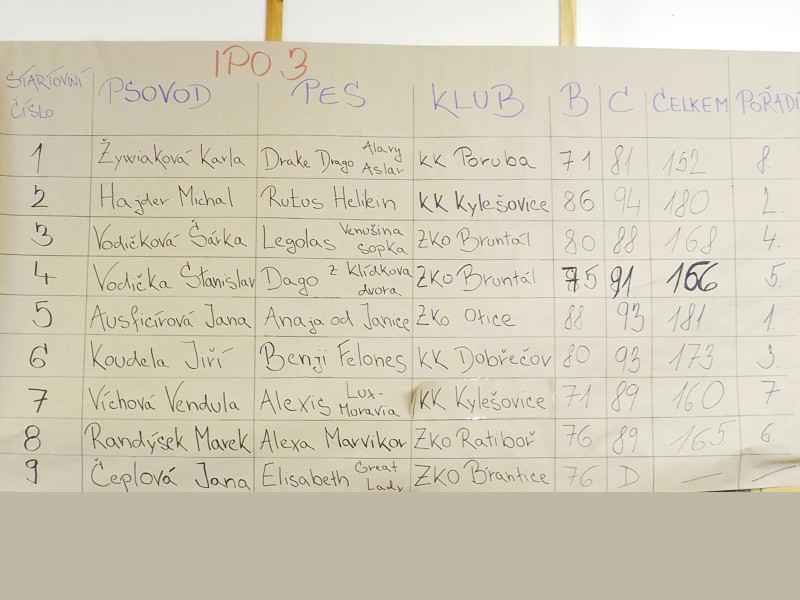 IPO 3
STARTOVNÍ ČÍSLO PSOVOD PES KLUB B C CELKEM POŘADÍ
1 Żywiaková Karla Drake Drago Alary Aslar KK Poruba 71 81 152 8.
2 Hajder Michal Rufus Helikin KK Kylešovice 86 94 180 2.
3 Vodičková Šárka Legolas Venušina sopka ZKO Bruntál 80 88 168 4.
4 Vodička Stanislav Dago z Klídkova dvora ZKO Bruntál 75 91 166 5.
5 Ausficírová Jana Anaja od Janice ZKO Otice 88 93 181 1.
6 Koudela Jiří Benji Felones KK Dobřečov 80 93 173 3.
7 Víchová Vendula Alexis Lux-Moravia KK Kylešovice 71 89 160 7.
8 Randýsek Marek Alexa Marvikor ZKO Ratiboř 76 89 165 6.
9 Čeplová Jana Elisabeth Great Lady ZKO Brantice 76 D — —